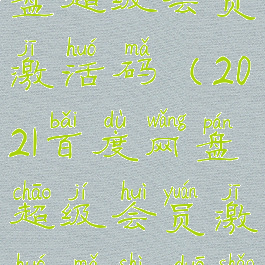 盘超级会员
jī huó mǎ
激活码(20
bǎi dù wǎng pán
21百度网盘
chāo jí huì yuán jī
超级会员激